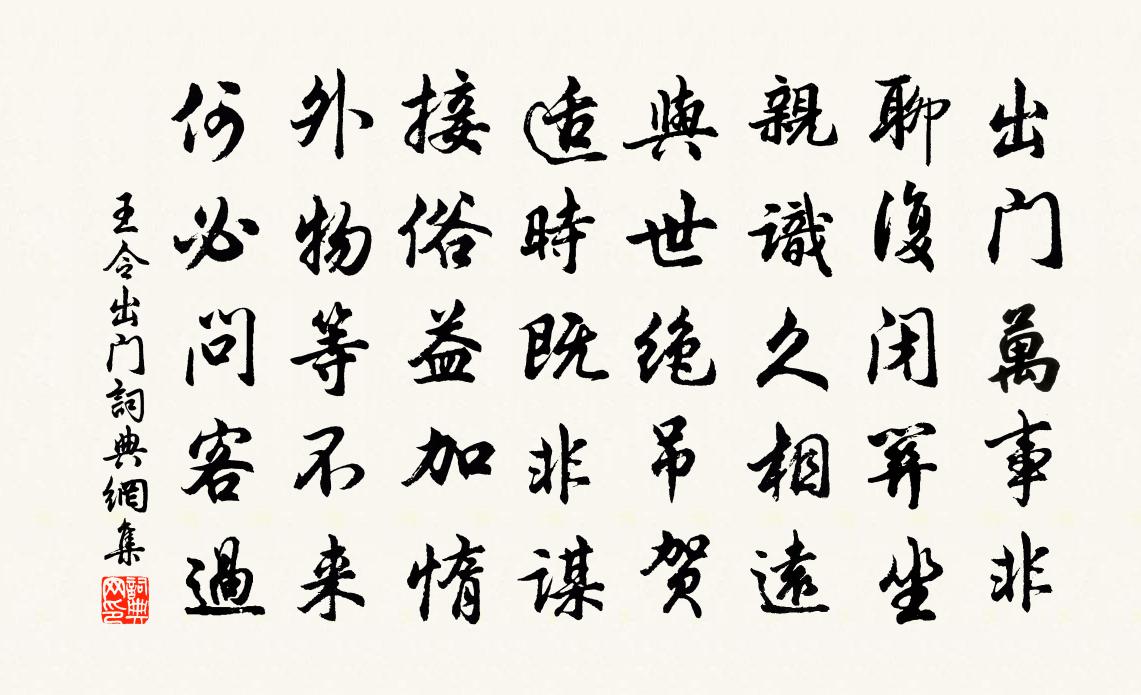 出门萬事非
聊復闭关坐
親識久相遠
與世绝吊贺
适時既非謀
接俗益加惰
外物等不来
何必问客過
王令出门詞典網集
詞典网印